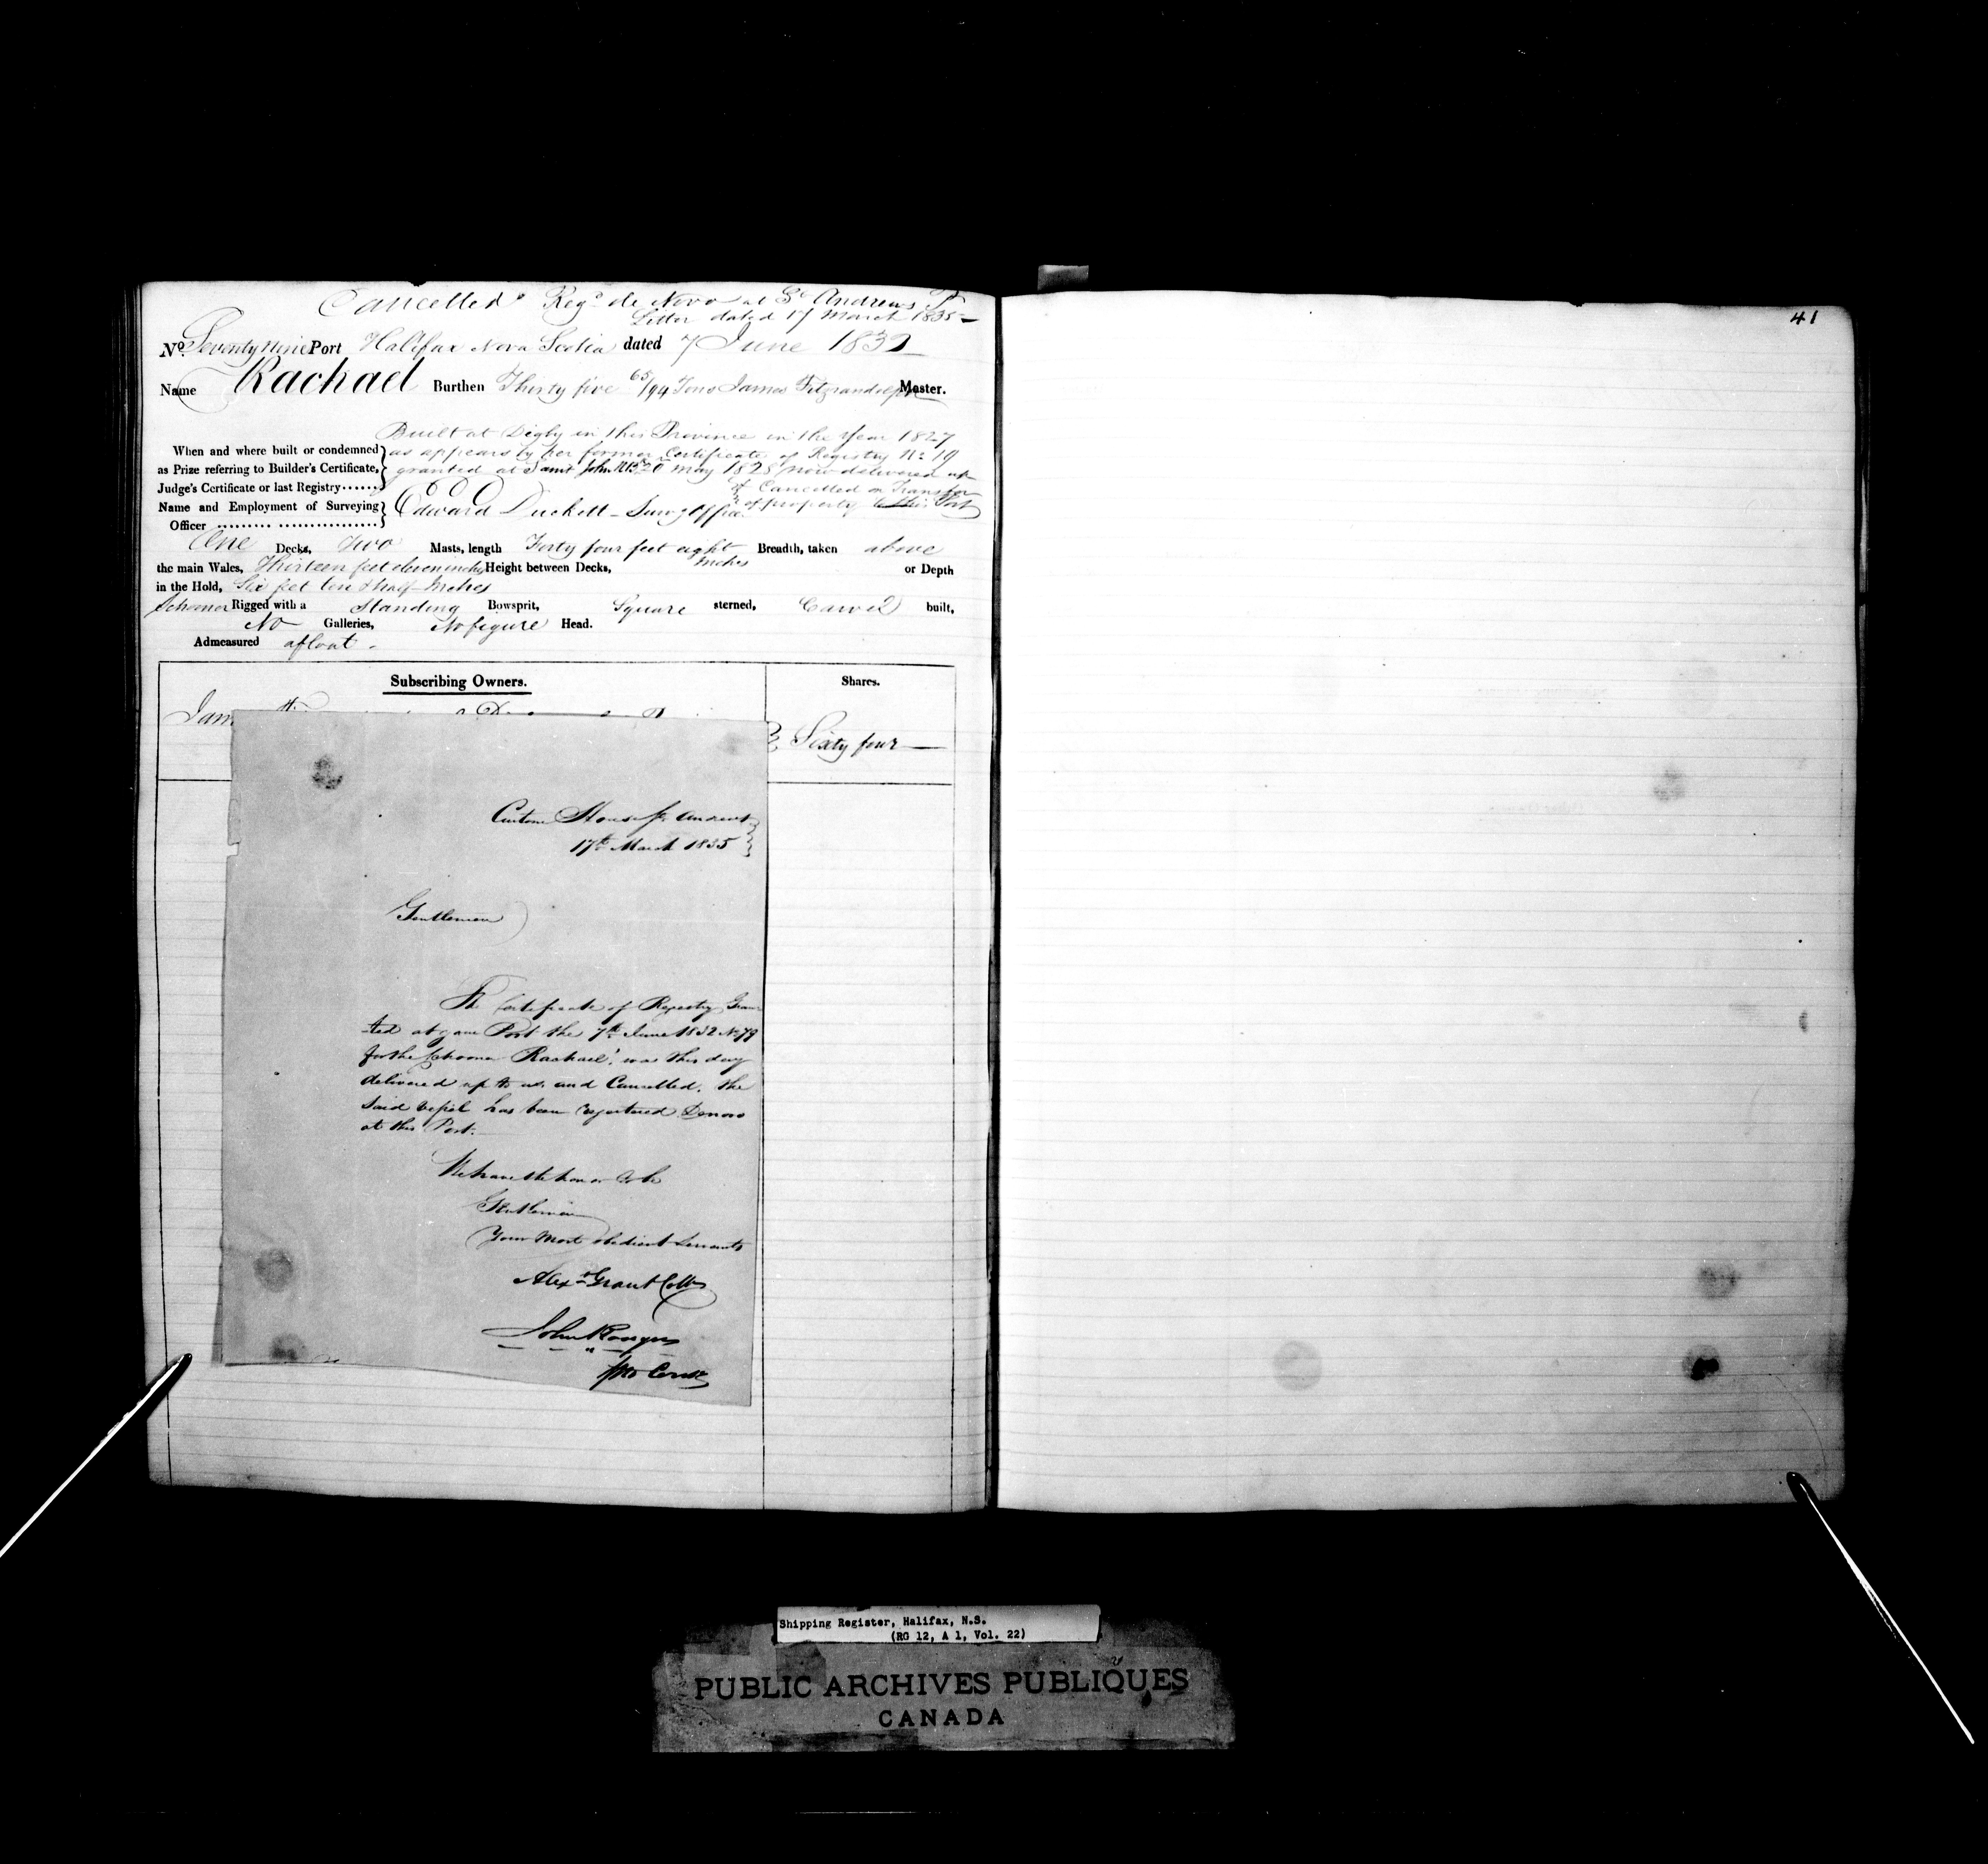 Cancelled Regd de Novo at St Andrews Pr
Letter dated 17 March 1835
No. Seventy nine Port Halifax Nova Scotia dated 7 June 1832
Name Rachael Burthen Thirty five 65/94 Tons James Fitzrandolph Master.
Built at Digby in this Province in the Year 1827
When and where built or condemned as appears by her former Certificate of Registry No 19
as Prize referring to Builder's Certificate, granted at Saint John NB 20 May 1828 now delivered up
Judge's Certificate or last Registry & Cancelled on Transfer
Name and Employment of Surveying Edward Duckett - Survg Officer of property to this Port
Officer
One Decks, Two Masts, length Forty four feet eight Inches Breadth, taken above
the main Wales, Thirteen feet eleven inches Height between Decks, or Depth
in the Hold, Six feet ten & half Inches
Schooner Rigged with a Standing Bowsprit, Square sterned, Carvel built,
No Galleries, No figure Head.
Admeasured afloat.
Subscribing Owners. Shares.
Sixty four
Custom House St Andrews
17th March 1835
Gentlemen
The Certificate of Registry Gran-
ted at your Port the 7th June 1832 No 79
for the Schooner Rachael, was this day
delivered up to us, and Cancelled, the
Said Vessel has been registered Denovo
at this Port.
We have the honor to be
Gentlemen
Your Most obedient Servants
Alexr Grant Collr
John
41
Shipping Register, Halifax, N.S.
(RG 12, A 1, Vol. 22)
PUBLIC ARCHIVES PUBLIQUES
CANADA